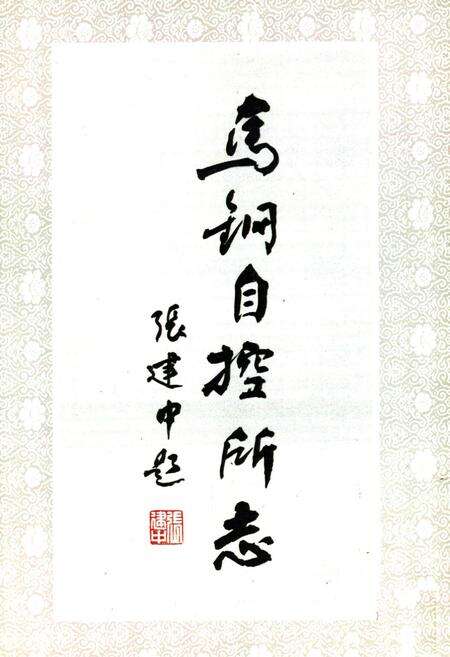 馬鋼自控所志
張建中題
張建中